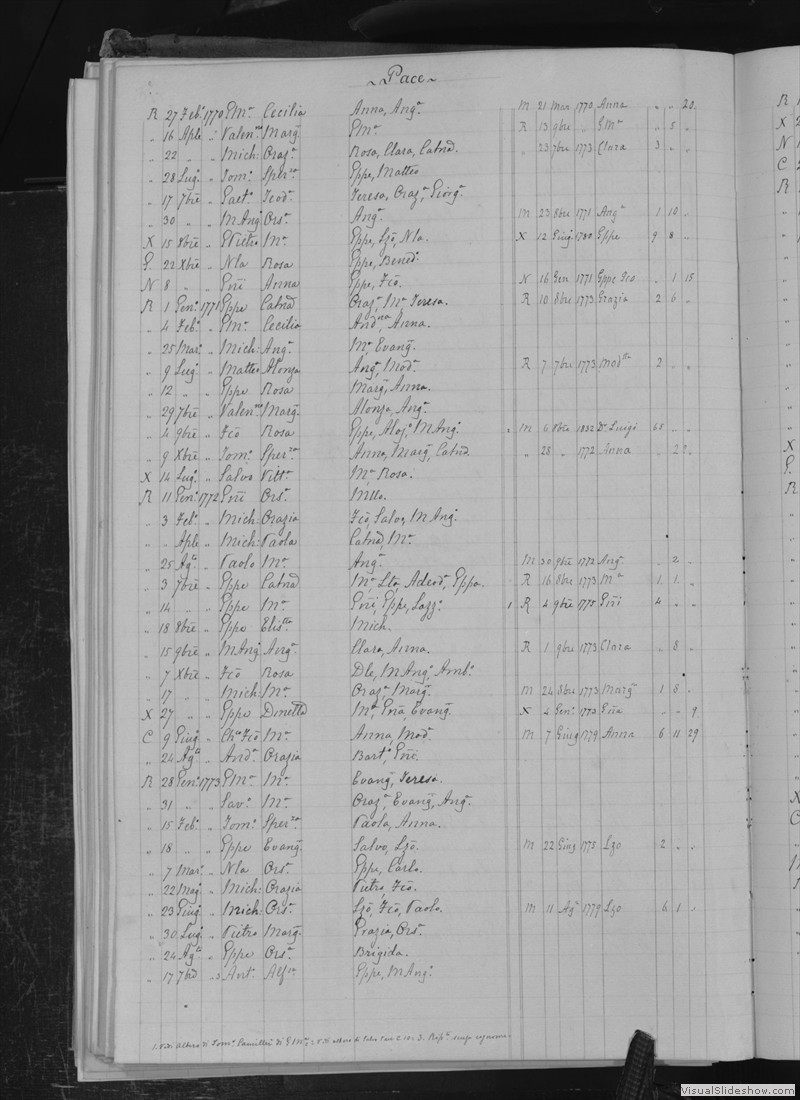 ~ Pace ~
R 27 Feb.° 1770 GMa Cecilia Anna, Ang.a M 21 Mar. 1770 Anna " " 20
" 16 Aple " Valen.no Marg.a GMa R 13 9bre " GMa " 5 "
" 22 " " Mich: Oraz.a Rosa, Clara, Catnd. " 23 7bre 1773 Clara 3 " "
" 28 Lug.° " Tom.° Sper.za Gppe, Matteo
" 17 7bre " Gaet.° Teod.a Teresa, Oraz.a, Giorg.a
" 30 " " MAng.° Ors.a Ang.a M 23 8bre 1771 Ang.a 1 10 "
X 15 8bre " GPietro Ma Gppe, Lzō, Nla. X 12 Giug.° 1780 Gppe 9 8 "
G. 22 Xbre " Nla Rosa Gppe, Bened.°
N 8 " " Gñi Anna Gppe, Fcō. N 16 Gen. 1771 Gppe Fco " 1 15
R 1 Gen.° 1771 Gppe Catnd Oraz.a, Ma Teresa. R 10 8bre 1773 Grazia 2 6 "
" 4 Feb.° " GMa Cecilia And.na, Anna.
" 25 Mar.° " Mich: Ang.a Ma, Evang.
" 9 Lug.° " Matteo Alonza Ang.a, Mod.a R 7 7bre 1773 Mod.ta 2 " "
" 12 " " Gppe Rosa Marg.a, Anna.
" 29 7bre " Valen.no Marg.a Alonza, Ang.a
" 4 9bre " Fcō Rosa Gppe, Aloj.°, MAng.° M 6 8bre 1832 Dn. Luigi 68 " "
" 9 Xbre " Tom.° Sper.za Anna, Marg.a, Catnd " 28 " 1772 Anna " 22 "
X 14 Lug.° " Salvo Vitt.a Ma Rosa.
R 11 Gen.° 1772 Gñi Ors.a Mlla.
" 3 Feb.° " Mich: Grazia Fcō, Salvo, MAng.°
" " Aple " Mich: Paola Catnd, Ma
" 25 Ag.to " Paolo Ma Ang.a M 30 9bre 1772 Ang.a " 2 "
" 3 7bre " Gppe Catnd Ma, Lzō, Adeod.a, Gppa. R 16 8bre 1773 Ma 1 1 "
" 14 " " Gppe Ma Gñi, Gppe, Lazz.° 1 R 4 9bre 1775 Gñi 4 " "
" 18 8bre " Gppe Elis.tta Mich.
" 15 9bre " MAng.° Ang.a Clara, Anna. R 1 9bre 1773 Clara " 8 "
" 7 Xbre " Fcō Rosa Dle, MAng.°, Amb.°
" 17 " " Mich: Ma Oraz.a, Marg.a M 24 8bre 1773 Marg.a 1 8 "
X 27 " " Gppe Dinetta Ma, Gña, Evang. X 4 Gen.° 1773 Gña " " 9
C 9 Giug.° " Chio Fcō Ma Anna, Mod.a M 7 Giug 1779 Anna 6 11 29
" 24 Ag.to " And.a Grazia Bart.°, Gñi.
R 28 Gen.° 1773 GMa Ma Evang, Teresa.
" 31 " " Sav.° Ma Oraz.a, Evang, Ang.a
" 15 Feb.° " Tom.° Sper.za Paola, Anna.
" 18 " " Gppe Evang. Salvo, Lzō. M 22 Giug 1775 Lzo 2 " "
" 7 Mar.° " Nla Ors.a Gppe, Carlo.
" 22 Mag.° " Mich: Grazia Pietro, Fcō.
" 23 Giug.° " Mich: Ors.a Lzō, Fcō, Paolo. M 11 Ag.° 1779 Lzo 6 1 "
" 30 Lug.° " Pietro Marg.a Grazia, Ors.a
" 24 Ag.to " Gppe Ors.a Brigida.
" 17 7bre " Ant.° Alf.sa Gppe, MAng.°
1. Vedi Albero di Tom.°
R
X
N
C
R
VisualSlideshow.com